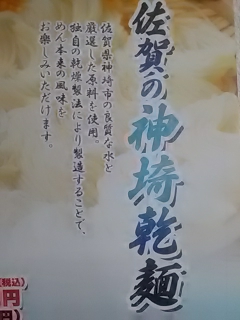 佐賀の神埼乾麺
佐賀県神埼市の良質な水と
厳選した原料を使用。
独自の乾燥製法により製造することで、
めん本来の風味を
お楽しみいただけます。
(税込)
円
円)